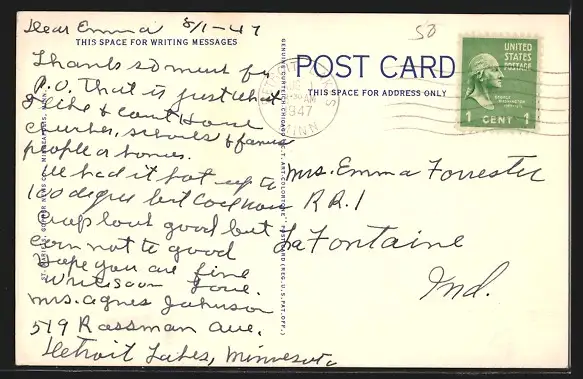 Dear Emma 8/1-47
THIS SPACE FOR WRITING MESSAGES
Thanks so much for
P.O. That is just what
I like & court House
churches, schools & famus
people or homes.
We had it hot up to
100 degree but cool now
Crop look good but
corn not to good
Hope you are fine
Write soon Love.
Mrs. Agnes Johnson
519 Rossman Ave.
Detroit Lakes, Minnesota
GENUINE CURTEICH-CHICAGO "C.T. ART-COLORTONE" POST CARD (REG. U.S. PAT. OFF.)
50
POST CARD
THIS SPACE FOR ADDRESS ONLY
DETROIT LAKES
AM
1947
MINN
UNITED
STATES
POSTAGE
1 CENT 1
Mrs. Emma Forrester
R R. 1
LaFontaine
Ind.